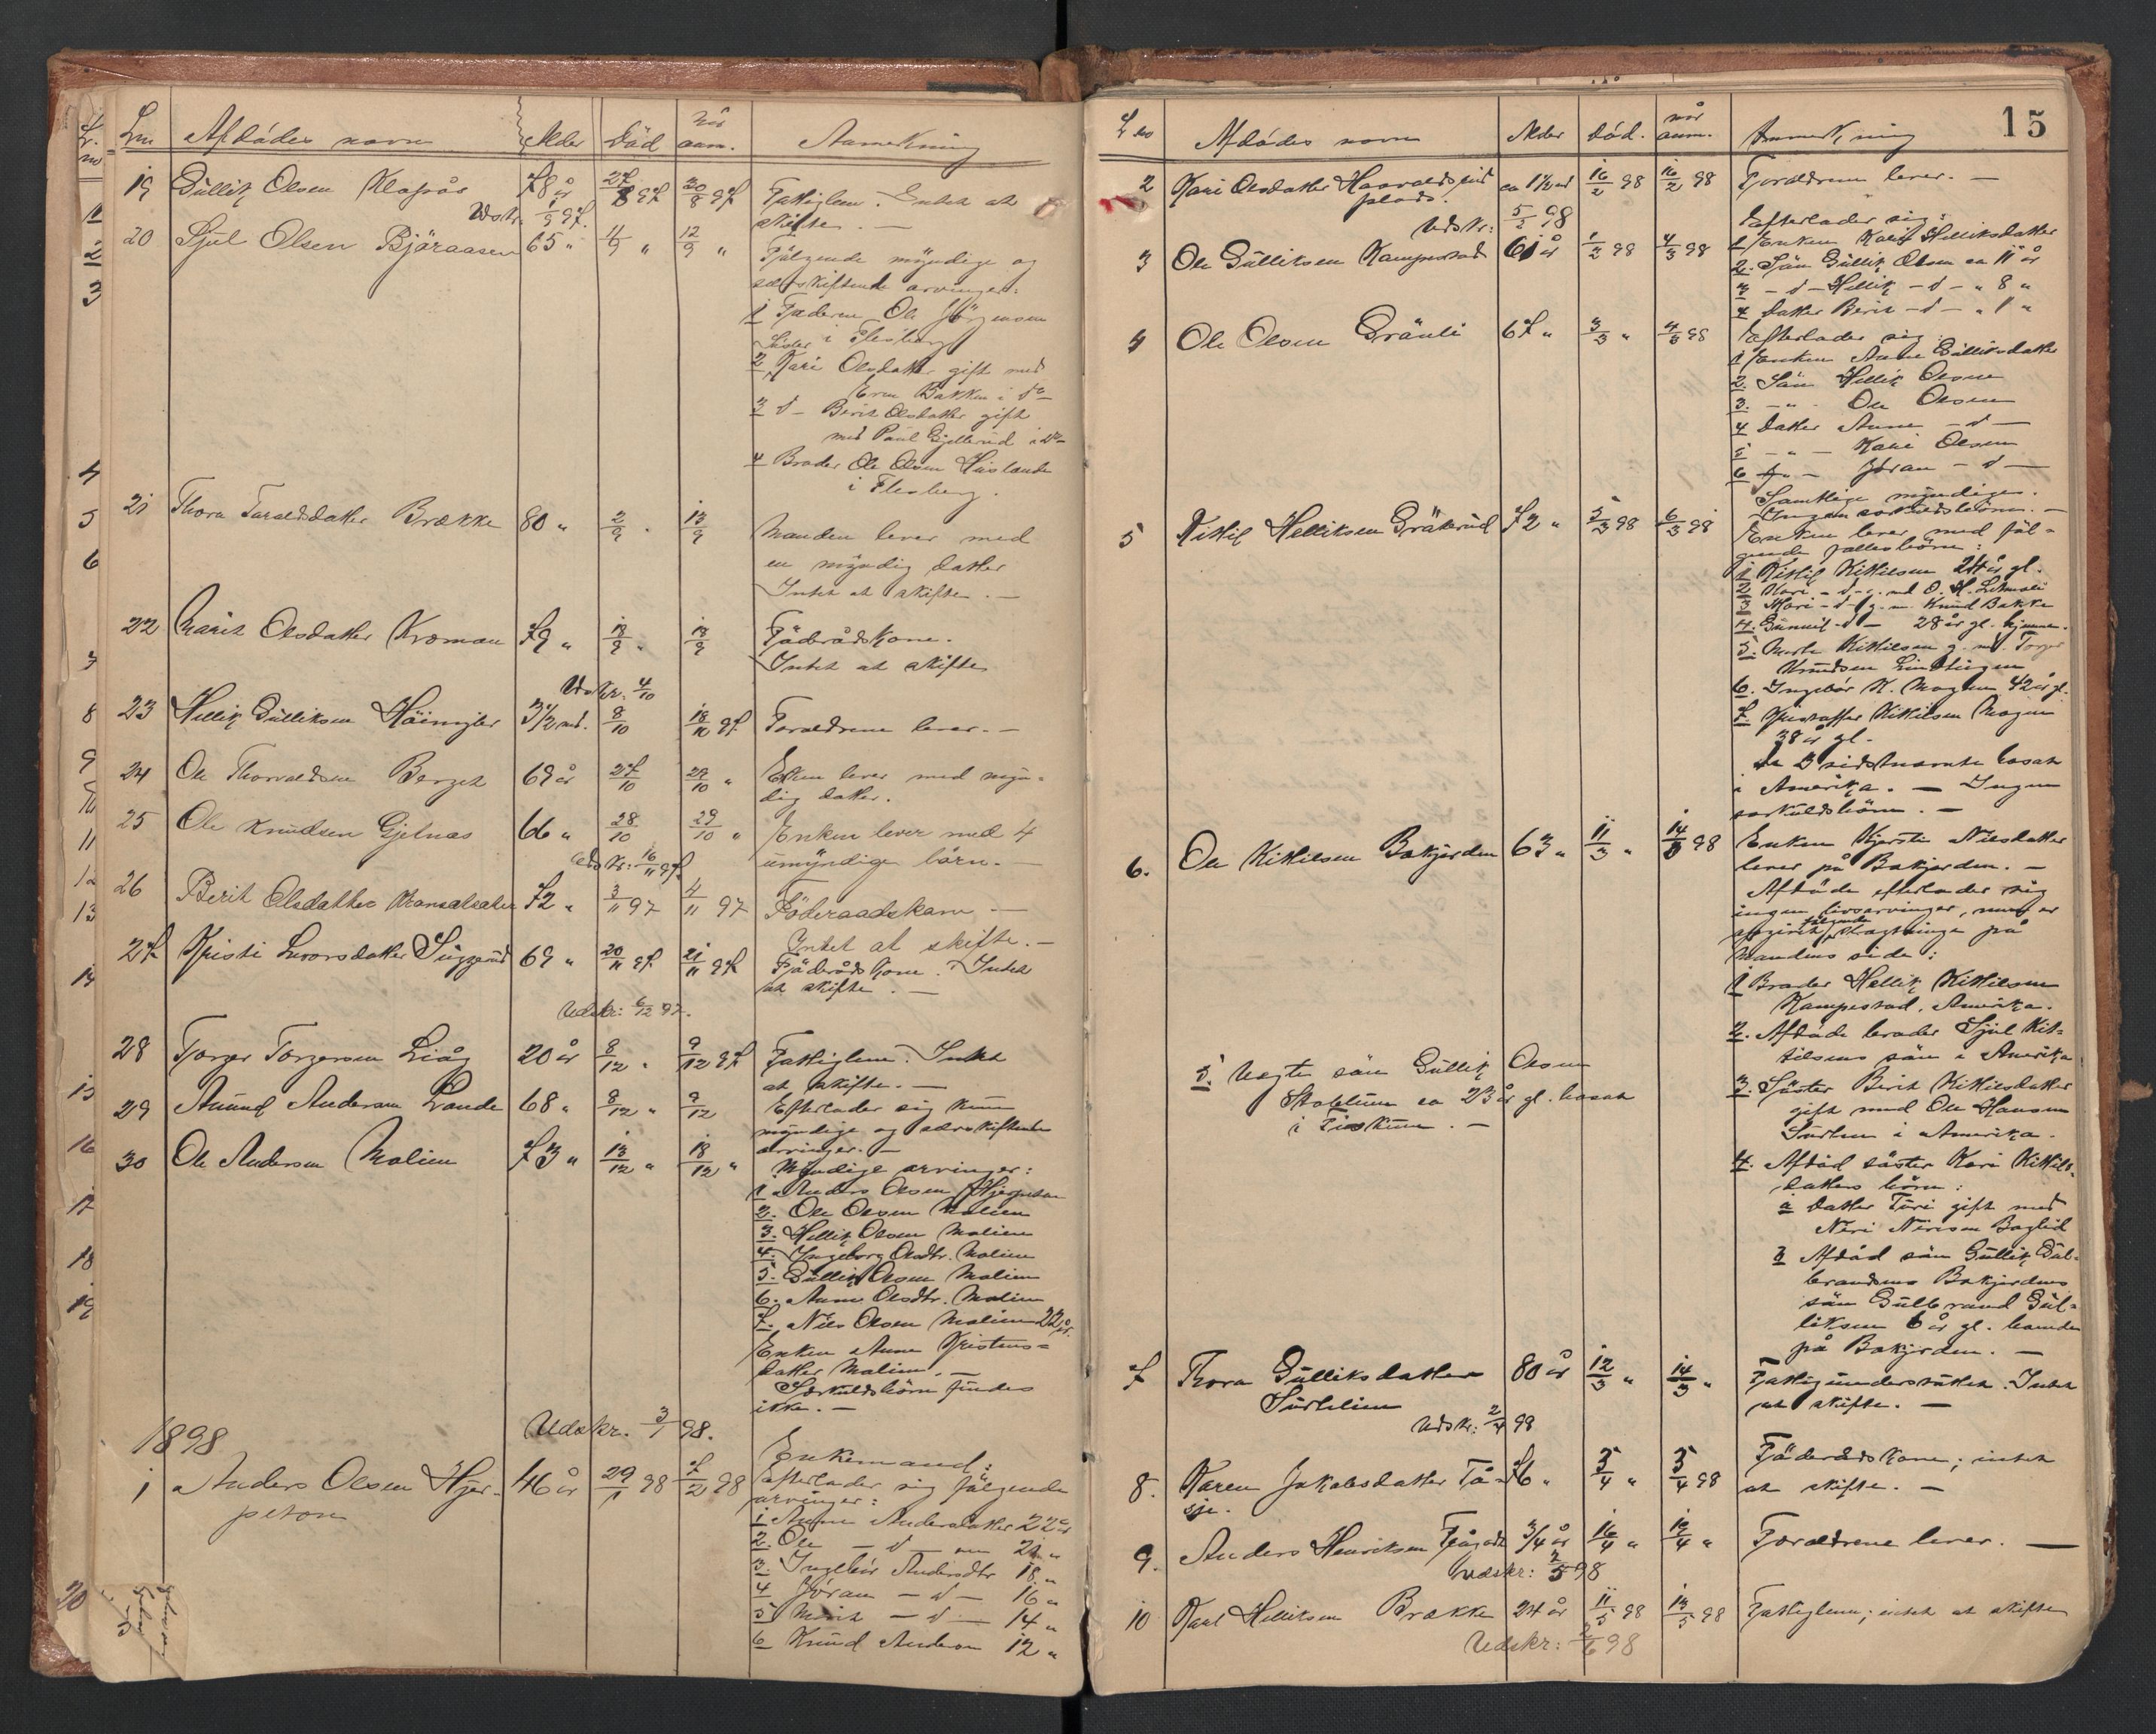 Lnr Afdødes navn Alder Död når anm. Anmerkning
19 Gullik Olsen Klapår 78 år 27/8 97 30/8 97 Fattiglem. Intet at
skifte. —
Udskr. 1/9 97.
20 Sjul Olsen Björaasen 65 " 11/9 " 12/9 " Fölgende myndige og
selvskiftende arvinger:
1 Faderen Ole Jörgensen
i Flesberg
2 Söster Kari Olsdatter gift med
Even Bakken i do
3 d - Berit Olsdatter gift
med Paul Gjellerud i do
4 Broder Ole Olsen
i Flesberg.
21 Thora Taraldsdatter Brække 80 " 2/9 " 13/9 Manden lever med
en myndig datter
Intet at skifte. —
22 Marit Olsdatter Kroman 79 " 13/9 " 13/9 Föderådskone.
Intet at skifte
Udskr. 4/10
23 Hellik Gulliksen 3 1/2 md. 8/10 18/10 97 Forældrene lever. —
24 Ole Thorvaldsen Berget 69 år 27/10 29/10 " Enken lever med myn-
dig datter.
25 Ole Knudsen Gjelnæs 66 " 28/10 29/10 " Enken lever med 4
umyndige börn. —
Udskr: 16/11 97.
26 Berit Olsdatter 72 " 3/11 97 4/11 97 Föderaadskone —
Intet at skifte. —
27 Kristi Levorsdatter Suggerud 69 " 20/11 97 21/11 97 Föderådskone. Intet
at skifte. —
Udskr: 6/12 97.
28 Torger Torgersen Liåg 20 år 8/12 " 9/12 97 Fattiglem. Intet
at skifte. —
29 Amund Andersen Lande 68 " 8/12 " 9/12 Efterlader sig kun
myndige og selvskiftende
arvinger. —
30 Ole Andersen Molien 73 " 13/12 " 18/12 " Myndige arvinger:
1 Anders Olsen Hjerpeton
2. Ole Olsen Molien
3. Hellik Olsen Molien
4. Ingeborg Olsdtr. Molien
5. Gullik Olsen Molien
6. Anne Olsdtr. Molien
7. Nils Olsen Molien 22 år.
Enken Anne Kristens-
datter Molien. —
Særkuldsbörn findes
ikke. —
Udskr. 3/1 98.
1898
1 Anders Olsen Hjer- 46 år 29/1 98 7/2 98 Enkemand:
peton
efterlader sig fölgende
arvinger:
1 Anne Andersdatter 22 år
2. Ole — d — sen 21 "
3. Ingebör Andersdtr 18 "
4 Jöran — d — 16 "
5 Marit — d — 14 "
6 Knud Andersen 12 "
15
Lno Afdødes navn Alder död. når anm. Anmerkning
2 Kari Olsdatter Haavalds ca 1 1/2 md 16/2 98 16/2 98 Forældrene lever. —
plads.
Udskr: 5/2 98
3 Ole Gulliksen Kampestad 61 år 1/2 98 4/3 98 Efterlader sig:
1 Enken Kari Helliksdatter
2. Sön Gullik Olsen ca 11 år
3 - d - Hellik - d - " 8 "
4 Datter Berit - d - " 1 "
4 Ole Olsen Gränli 67 " 3/3 " 4/3 98 Efterlader sig
1 Enken Anne Gulliksdatter
2. Sön Hellik Olsen
3. - " - Ole Olsen
4 Datter Anne - d -
5 - " - Kari Olsen
6 - " - Jöran - d -
Samtlige myndige.
Ingen særkuldsbörn. —
5 Kittil Helliksen Gräterud 72 " 5/3 98 6/3 98 Enken lever med föl-
gende fællesbörn:
1 Kittil Kittilsen 24 år gl.
2 Kari - d - g. med O. H.
3 Mari - d - g. m. Knud Bakke
4. Gunnil - d - 28 år gl. hjemme.
5. Marte Kittilsen g. md. Torger
Knudsen
6. Ingebör K. Mogen 42 år gl.
7. Kristoffer Kittilsen Mogen
38 år gl.
De 3 sidstnævnte bosat
i Amerika. — Ingen
særkuldsbörn. —
6. Ole Kittilsen Bakjorden 63 " 11/3 " 14/3 98 Enken Kjersti Nilsdatter
lever på Bakjorden. —
Afdöde efterlader sig
ingen livsarvinger, men er
følgende slægtninge på
Mandens side:
1 Broder Hellik Kittilsen
Kampestad, Amerika.
2. Afdöde broder Sjul Kit-
tilsens sön i Amerika
3. Söster Berit Kittilsdatter
gift med Ole Hansen
Surtlien i Amerika.
4. Afdöd söster Kari Kittils-
datters börn:
a datter Turi gift med
Neri Nerisen Baglid
b Afdöd sön Gullik Gul-
brandsens Bakjordens
sön Gulbrand Gul-
liksen 6 år gl. hjemme
på Bakjorden. —
5. Uægte sön Gullik Olsen
ca 23 år gl. bosat
i Fiskum. —
7 Thora Gulliksdatter 80 år 12/3 " 14/3 " Fattigunderstöttet. Intet
Surtelien
at skifte. —
Udskr: 2/4 98
8. Karen Jakobsdatter Tå- 76 " 3/4 " 5/4 98 Föderådskone; intet
sje.
at skifte. —
9. Anders Henriksen 3/4 år 16/4 " 18/4 " Forældrene lever. —
Udskr: 2/5 98
10 Karl Helliksen Brække 24 år 11/5 98 13/5 98 Fattiglem; intet at skifte
Udskr: 2/6 98